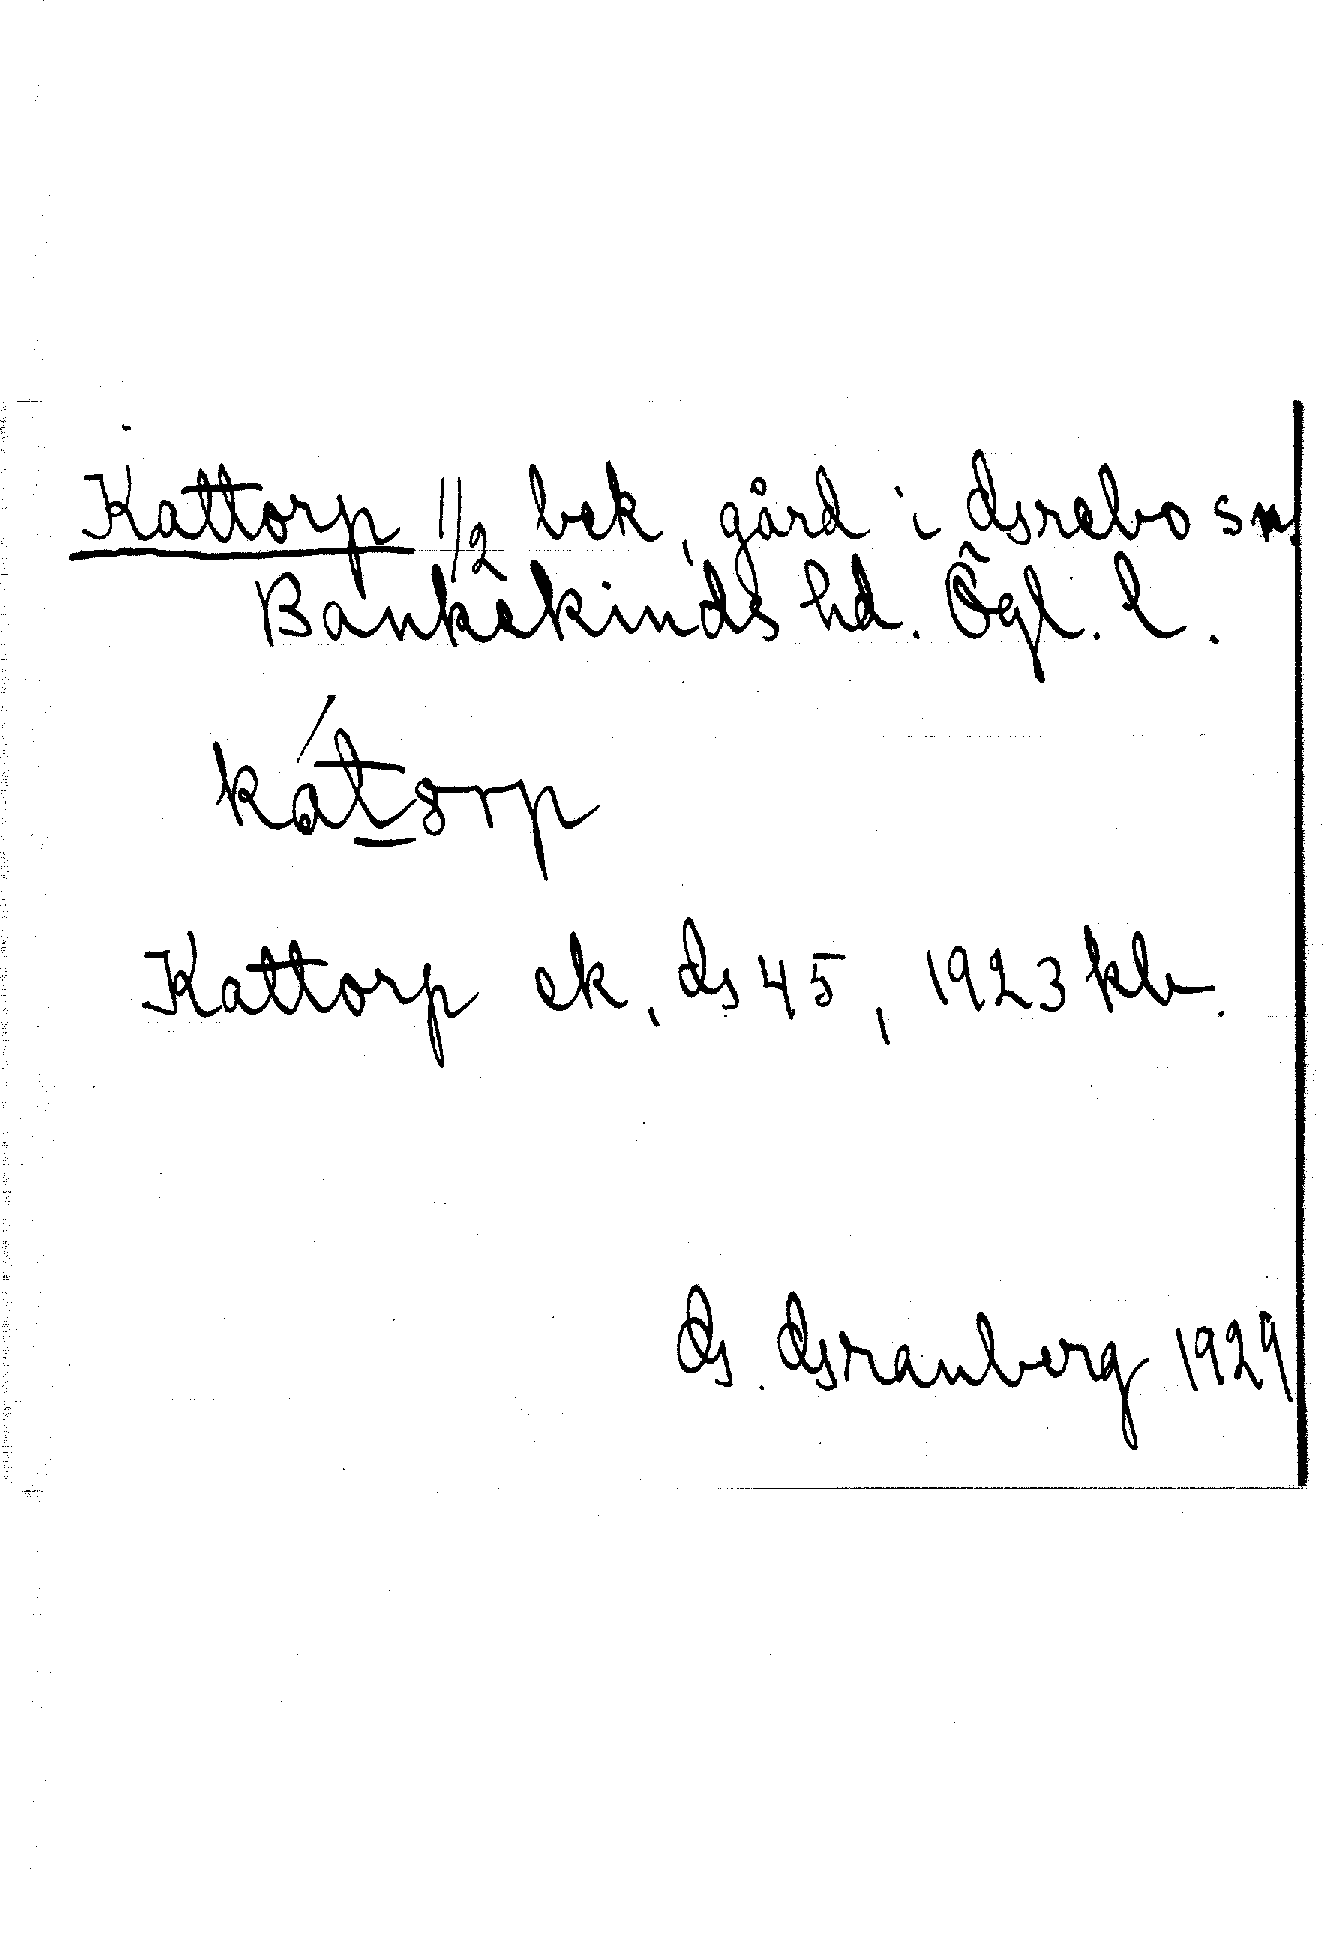 Kattorp 1/2 bek, gård i Grebo sn
Bankekinds hd. Ögl. l.
kátorp
Kattorp ek, G 45, 1923 kb.
G. Granberg 1929